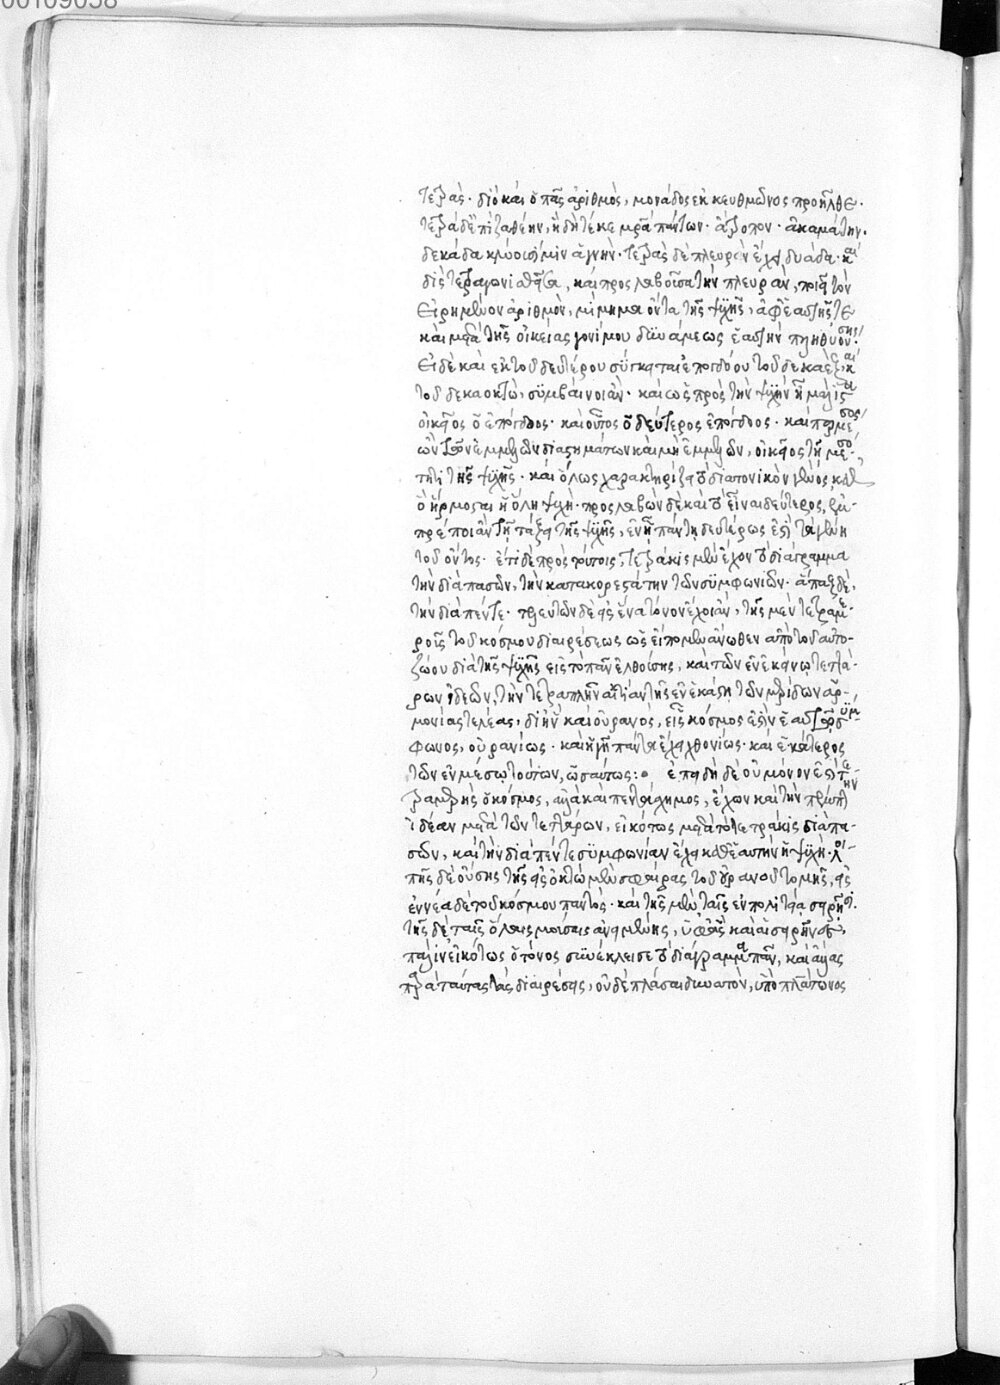 00109058
τετρὰς· διὸ καὶ ὁ πᾶς ἀριθμὸς, μονάδος ἐκ κευθμῶνος προῆλθε·
τετράδ' ἐπὶ ζαθέην, ἣ δὴ τέκε μητέρα πάντων· ἄτροπον· ἀκαμάτην·
δεκάδα κλύουσί μιν ἁγνήν· τετρὰς δὲ πλευρὰν ἔχει δυάδα· καὶ
δὶς τετραγωνισθεῖσα, καὶ προσλαβοῦσα τὴν πλευρὰν, ποιεῖ τὸν
εἰρημένον ἀριθμὸν, μίμημα ὄντα τῆς ψυχῆς, ἀφ' ἑαυτῆς τε
καὶ μετὰ τῆς οἰκείας γονίμου δυνάμεως ἑαυτὴν πληθυούσης·
εἰ δὲ καὶ ἐκ τοῦ δευτέρου σύγκειται ἐπογδόου τοῦ δεκαὲξ καὶ
τοῦ δεκαοκτὼ, συμβαίνοι ἂν· καὶ ὡς πρὸς τὴν ψυχὴν
οἰκεῖος ὁ ἐπόγδοος· καὶ οὗτος ὁ δεύτερος ἐπόγδοος· καὶ
ὢν τῶν ἐμμελῶν διαστημάτων καὶ μὴ ἐμμελῶν, οἰκεῖος τῇ
τῆς ψυχῆς· καὶ ὅλως χαρακτηρίζει τὸ διατονικὸν γένος, καθ'
ὃ ἥρμοσται ἡ ὅλη ψυχή· προσλαβὼν δὲ καὶ τὸ εἶναι δεύτερος,
πρέποι ἂν τῇ τάξει τῆς ψυχῆς, ἐν ᾗ πάντη δευτέρως ἐστὶ τὰ γένη
τοῦ ὄντος· ἔτι δὲ πρὸς τούτοις, τετράκις μὲν ἔχον τὸ διάγραμμα
τὴν διὰ πασῶν, τὴν κατακορεστάτην τῶν συμφωνιῶν· ἅπαξ δὲ,
τὴν διὰ πέντε· πλευτῶν δὲ εἰς ἕνα τόνον ἔχοι ἂν, τῆς μὲν τετραμε-
ροῦς τοῦ κόσμου διαιρέσεως ὡς εἴπομεν ἄνωθεν ἀπὸ τοῦ αὐτο-
ζώου διὰ τῆς ψυχῆς εἰς τὸ πᾶν ἐλθούσης, καὶ τῶν ἐν ἐκείνῳ τεττά-
ρων ἰδεῶν, τὴν τετραπλῆν αἰτίαν τῆς ἐν ἑκάστῃ τῶν μερίδων ἁρ-
μονίας τελέας, δι' ἣν καὶ οὐρανὸς, εἷς κόσμος ἐστὶν ἑαυτῷ σύμ-
φωνος, οὐρανίως· καὶ ἡ γῆ πάντα ἔχει χθονίως· καὶ ἑκάτερος
τῶν ἐν μέσῳ τούτων, ὡσαύτως: ἐπειδὴ δὲ οὐ μόνον ἐστὶ τε-
τραμερὴς ὁ κόσμος, ἀλλὰ καὶ πεντάσχημος, ἔχων καὶ τὴν πέμπτην
ἰδέαν μετὰ τῶν τεττάρων, εἰκότως μετὰ τὸ τετράκις διὰ πα-
σῶν, καὶ τὴν διὰ πέντε συμφωνίαν ἔχει καθ' ἑαυτὴν ἡ ψυχή· λοι-
πῆς δὲ οὔσης τῆς εἰς ὀκτὼ μὲν σφαίρας τοῦ οὐρανοῦ τομῆς, εἰς
ἐννέα δὲ τοῦ κόσμου παντός· καὶ τῆς μὲν ταῖς ἐν πολιτείᾳ σειρῆσι·
τῆς δὲ ταῖς ὅλαις μούσαις ἀνειμένης, ὑφ' αἷς καὶ αἱ σειρῆνες,
πάλιν εἰκότως ὁ τόνος συνέκλεισε τὸ διάγραμμα πᾶν, καὶ ἄλλας
παρὰ ταύτας τὰς διαιρέσεις, οὐδὲ πλάσαι δυνατὸν, ὑπὸ πλάτωνος